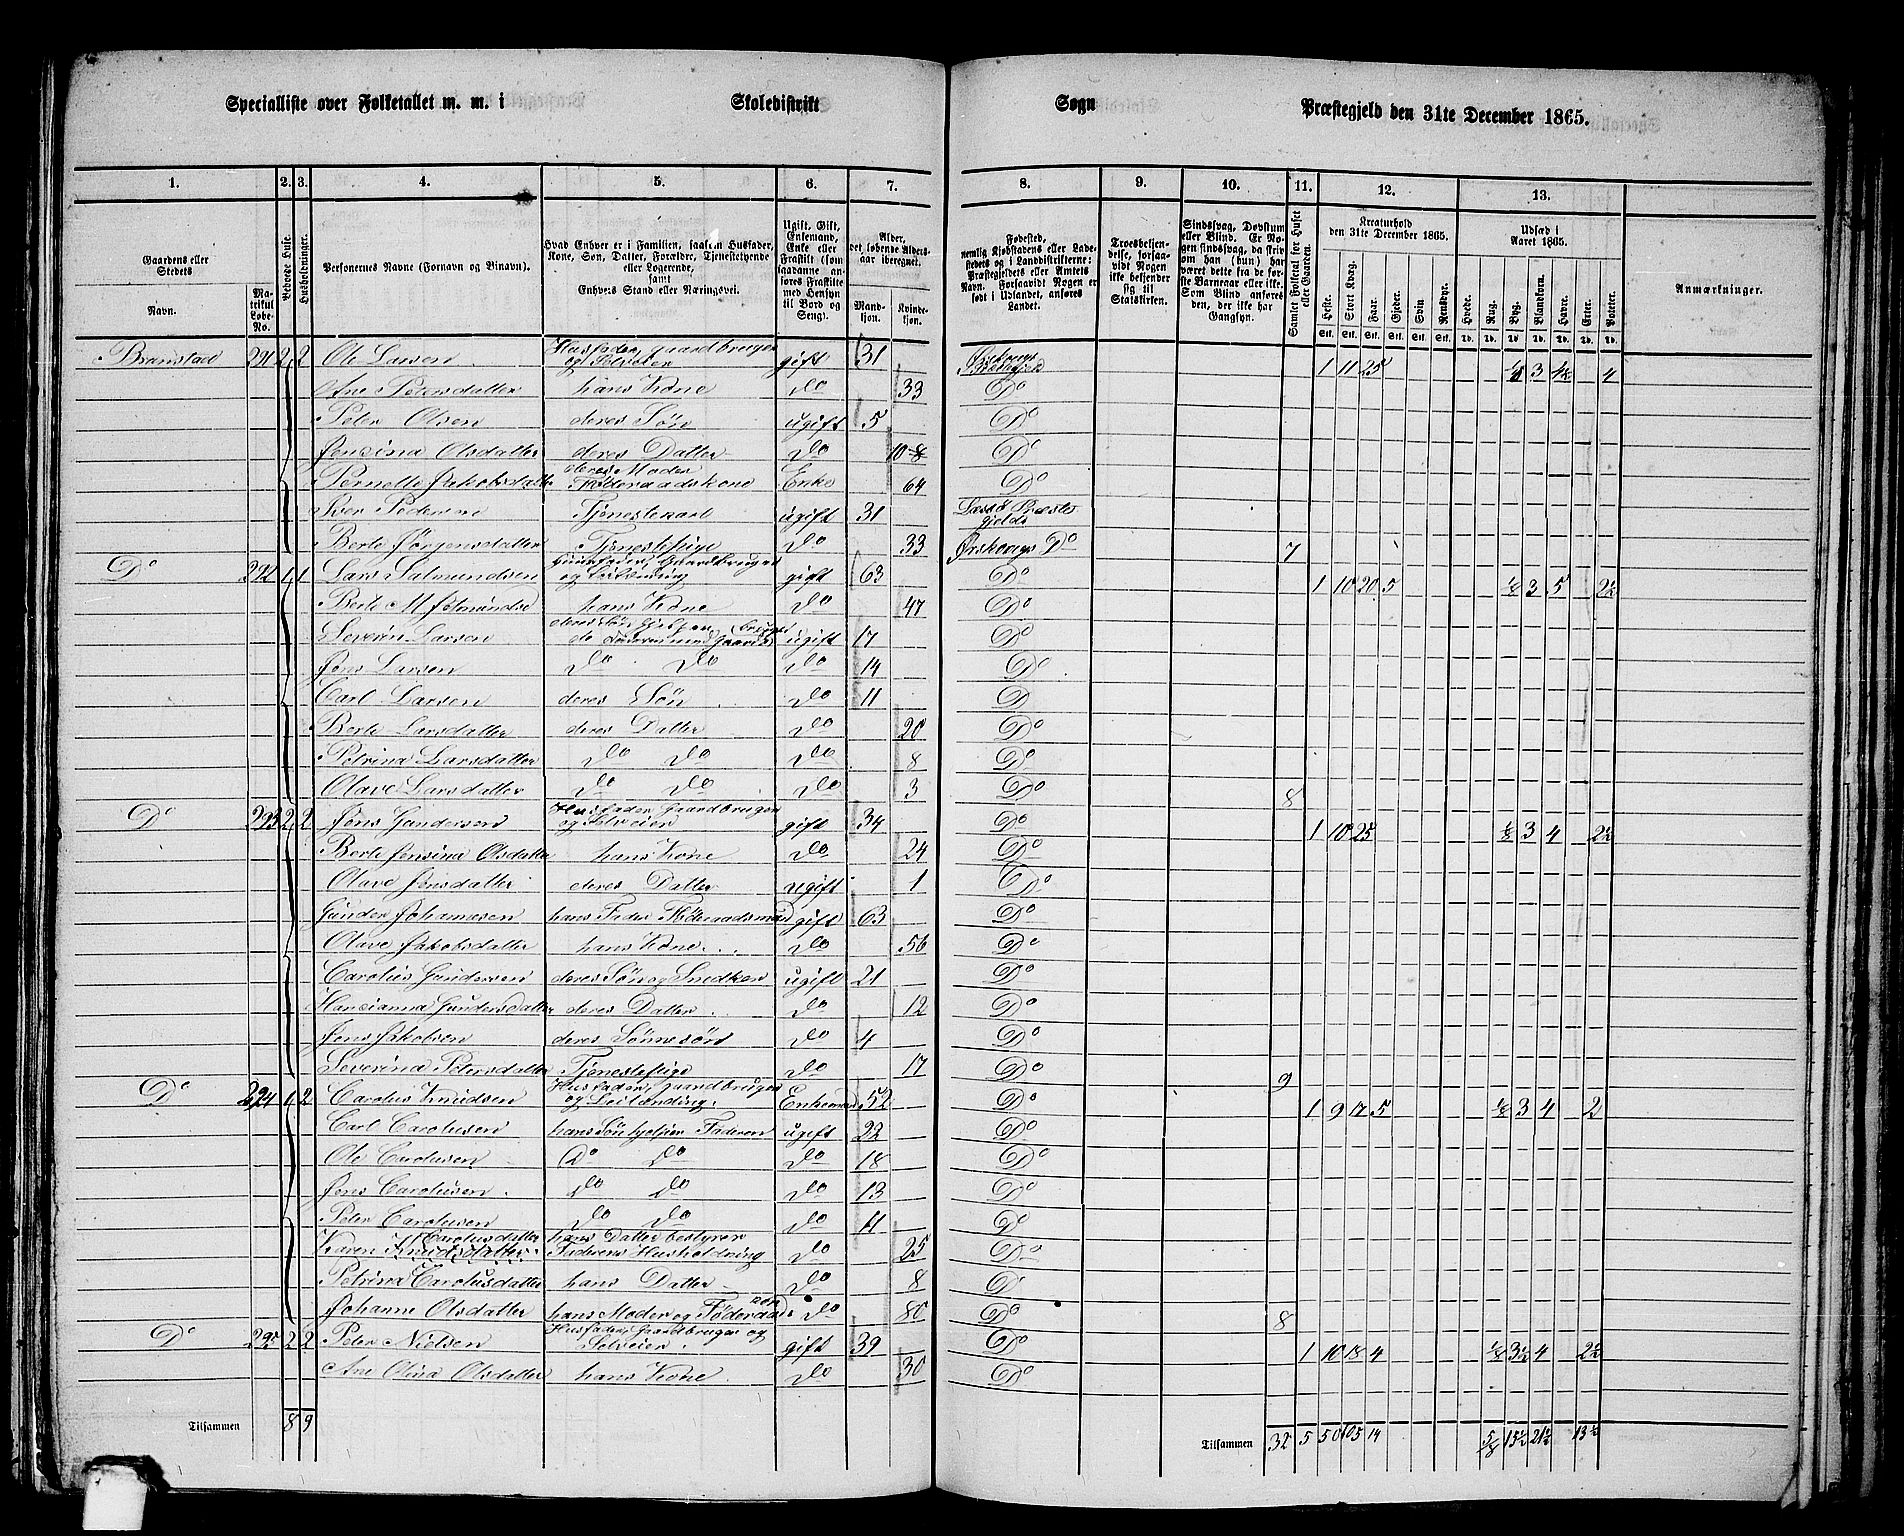 Specialliste over Folketallet m. m. i Skoledistrikt Sogn Præstegjeld den 31te December 1865.
1. 2. 3. 4. 5. 6. 7. 8. 9. 10. 11. 12. 13.
Gaardens eller Stedets
Navn.
Matrikul Løbe-No.
Beboede Huse.
Husholdninger.
Personernes Navne (Fornavn og Binavn).
Hvad Enhver er i Familien, saasom Husfader, Kone, Søn, Datter, Forældre, Tjenestetyende eller Logerende, samt Enhvers Stand eller Næringsvei.
Ugift, Gift, Enkemand, Enke eller Fraskilt (som saadanne anføres Fraskilte med Hensyn til Bord og Seng).
Alder, det løbende Alders-aar iberegnet.
Mandkjøn. Kvindekjøn.
Fødested, nemlig Kjøbstadens eller Ladestedets og i Landdistrikterne: Præstegjeldets eller Amtets Navn. Forsaavidt Nogen er født i Udlandet, anføres Landet.
Troesbekjendelse, forsaavidt Nogen ikke bekjender sig til Statskirken.
Sindssvag, Døvstum eller Blind. Er Nogen sindssvag, da skrives om han (hun) har været dette fra de første Barneaar eller ikke. Som Blind anføres den, der ikke har Gangsyn.
Samlet Folketal for Huset eller Gaarden.
Kreaturhold den 31te December 1865.
Heste. Stort Kvæg. Faar. Gjeder. Svin. Rensdyr.
Udsæd i Aaret 1865.
Hvede. Rug. Byg. Blandkorn. Havre. Erter. Poteter.
Anmærkninger.
Branstad 291 2 2 Ole Larsen Husfader, Gaardbruger og Selveier gift 31 Ørskougs Præstegjeld 1 11 25 3 4½ 4
Ane Petersdatter hans Kone Do 33 Do
Peter Olsen deres Søn ugift 5 Do
Jensina Olsdatter deres Datter Do Do
Pernelle Jakobsdatter deres Moder Føderaadskone Enke 64 Do
Iver Pedersen Tjenestekarl ugift 31 Præstegjeld
Berte Jørgensdatter Tjenestepige Do 33 Ørskougs Do 7
Do 292 1 1 Lars Salmundsen Husfader, Gaardbruger og Leilænding gift 63 Do 1 10 20 5 ⅛ 3 5 2½
Berte M. hans Kone Do 47 Do
Severin Larsen ugift 17 Do
Jens Larsen Do Do Do 14 Do
Carl Larsen deres Søn Do 11 D
Berte Larsdatter deres Datter Do 20 Do
Petrina Larsdatter Do Do Do 8 Do
Olave Larsdatter Do Do Do 3 Do 8
Do 293 2 2 Jens Gundersen Husfader, Gaardbruger og Selveier gift 34 Do 1 10 25 ⅛ 3 4 2½
Berte Jensina Olsdatter hans Kone Do 24 Do
Olave Jensdatter deres Datter ugift 1 Do
Gunder Johannesen hans Fader Føderaadsmand gift 63 Do
Olave Jakobsdatter hans Kone Do 56 Do
Carolus Gundersen deres Søn og Snedker ugift 21 Do
Hansianna Gundersdatter deres Datter Do 12 Do
Jens Jakobsen deres Sønnesøn Do 4 Do
Severina Petersdatter Tjenestepige Do 17 Do 9
Do 294 1 2 Carolus Knudsen Husfader, Gaardbruger og Leilænding. Enkemand 52 Do 1 9 17 5 ⅛ 3 4 2
Carl Carolusen hans Søn hjelper Faderen ugift 22 Do
Ole Carolusen Do Do Do 18 Do
Jens Carolusen Do Do Do 13 Do
Peter Carolusen Do Do Do 11 Do
Karen Knudsdatter Carolusdatter hans Datter bestyrer Faderens Husholdning Do 25 Do
Petrina Carolusdatter hans Datter Do 8 D
Johanne Olsdatter hans Moder og Føderaads kone Do 80 Do 8
Do 295 2 2 Peter Nielsen Husfader, Gaardbruger og Selveier gift 39 Do 1 10 18 4 ⅛ 3½ 4 2½
Ane Olina Olsdatter hans Kone Do 30 Do
Tilsammen 8 9 Tilsammen 32 5 50 105 14 ⅝ 15½ 21½ 13½